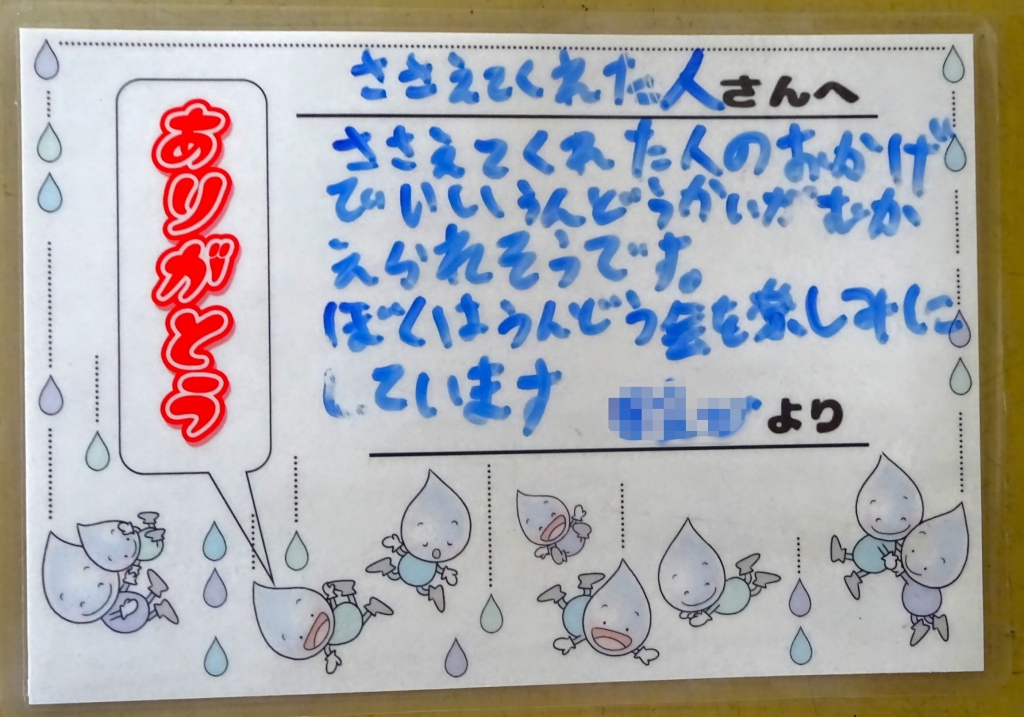 ありがとう
ささえてくれた人さんへ
ささえてくれた人のおかげ
でいいうんどうかいがむか
えられそうです。
ぼくはうんどう会を楽しみに
しています
より